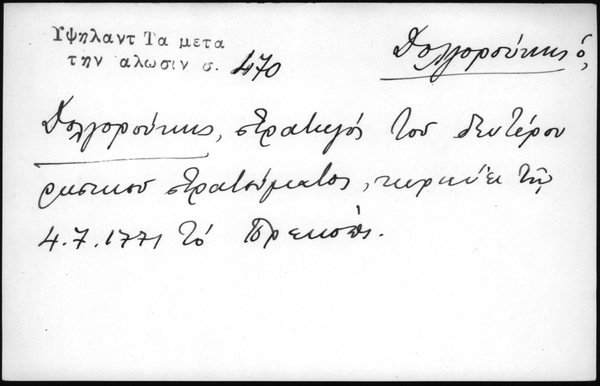 Υψηλαντ Τα μετα
την αλωσιν σ. 470
Δολγορούκης ὁ,
Δολγορούκης, στρατηγός του δευτέρου
ρωσικού στρατεύματος, κυριεύει τῇ
4.7.1771 τό Πρεκόπι.